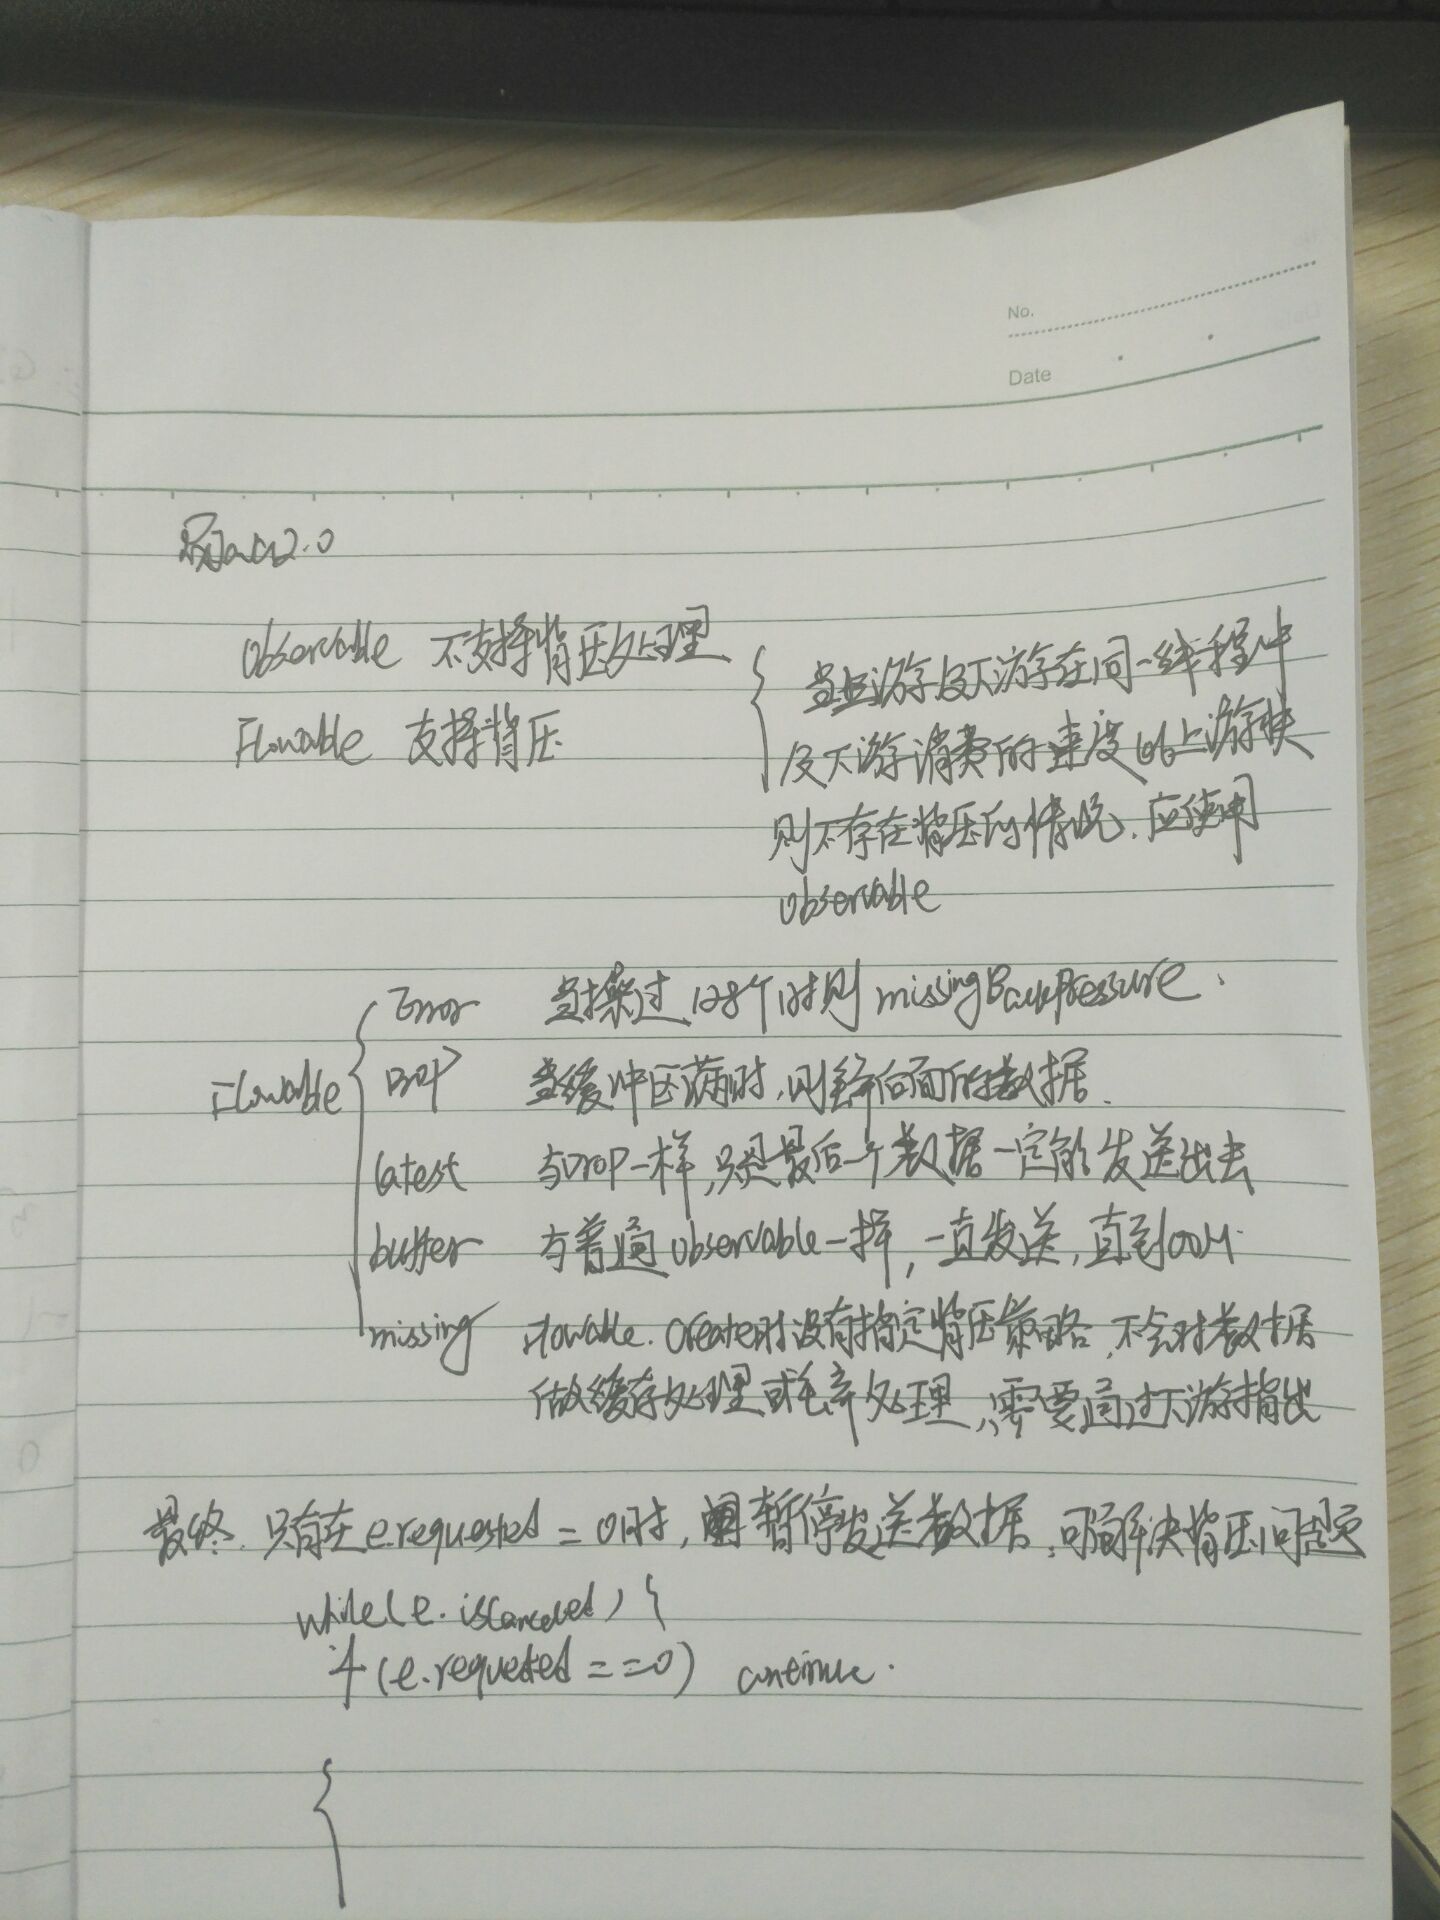 No.
Date
RxJava2.0
Observable 不支持背压处理
当上游及下游在同一线程中
Flowable 支持背压
及下游消费的速度比上游快
则不存在背压的情况.应使用
observable
Error 当超过128个时则missingBackPressure.
Flowable
Drop 当缓冲区满时,则丢弃后面的数据.
latest 与Drop一样,只是最后一个数据一定能发送出去
buffer 与普通observable一样,一直发送,直到OOM.
missing Flowable.Create时没有指定背压策略,不会对数据
做缓存处理或丢弃处理,需要通过下游指出
最终.只有在e.requested=0时,暂停发送数据,可解决背压问题
while(e.isCanceled){
if(e.requested==0) continue.
{